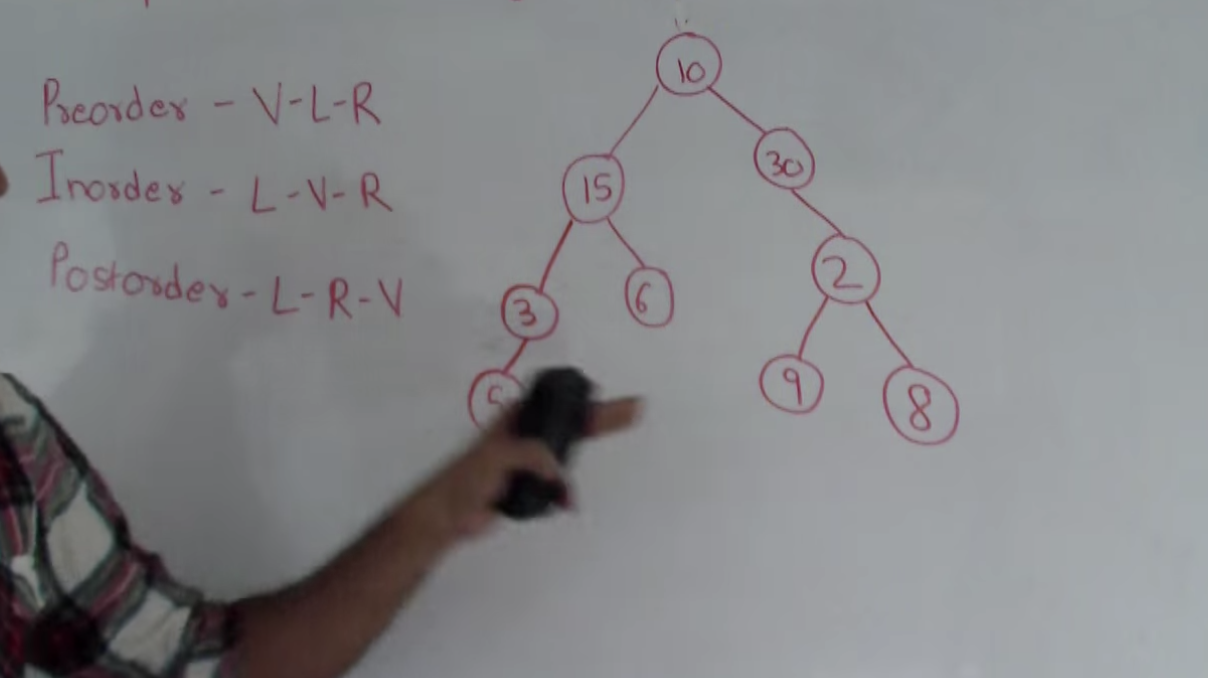 Preorder - V-L-R
Inorder - L-V-R
Postorder - L-R-V
10
15
30
3
6
2
9
8